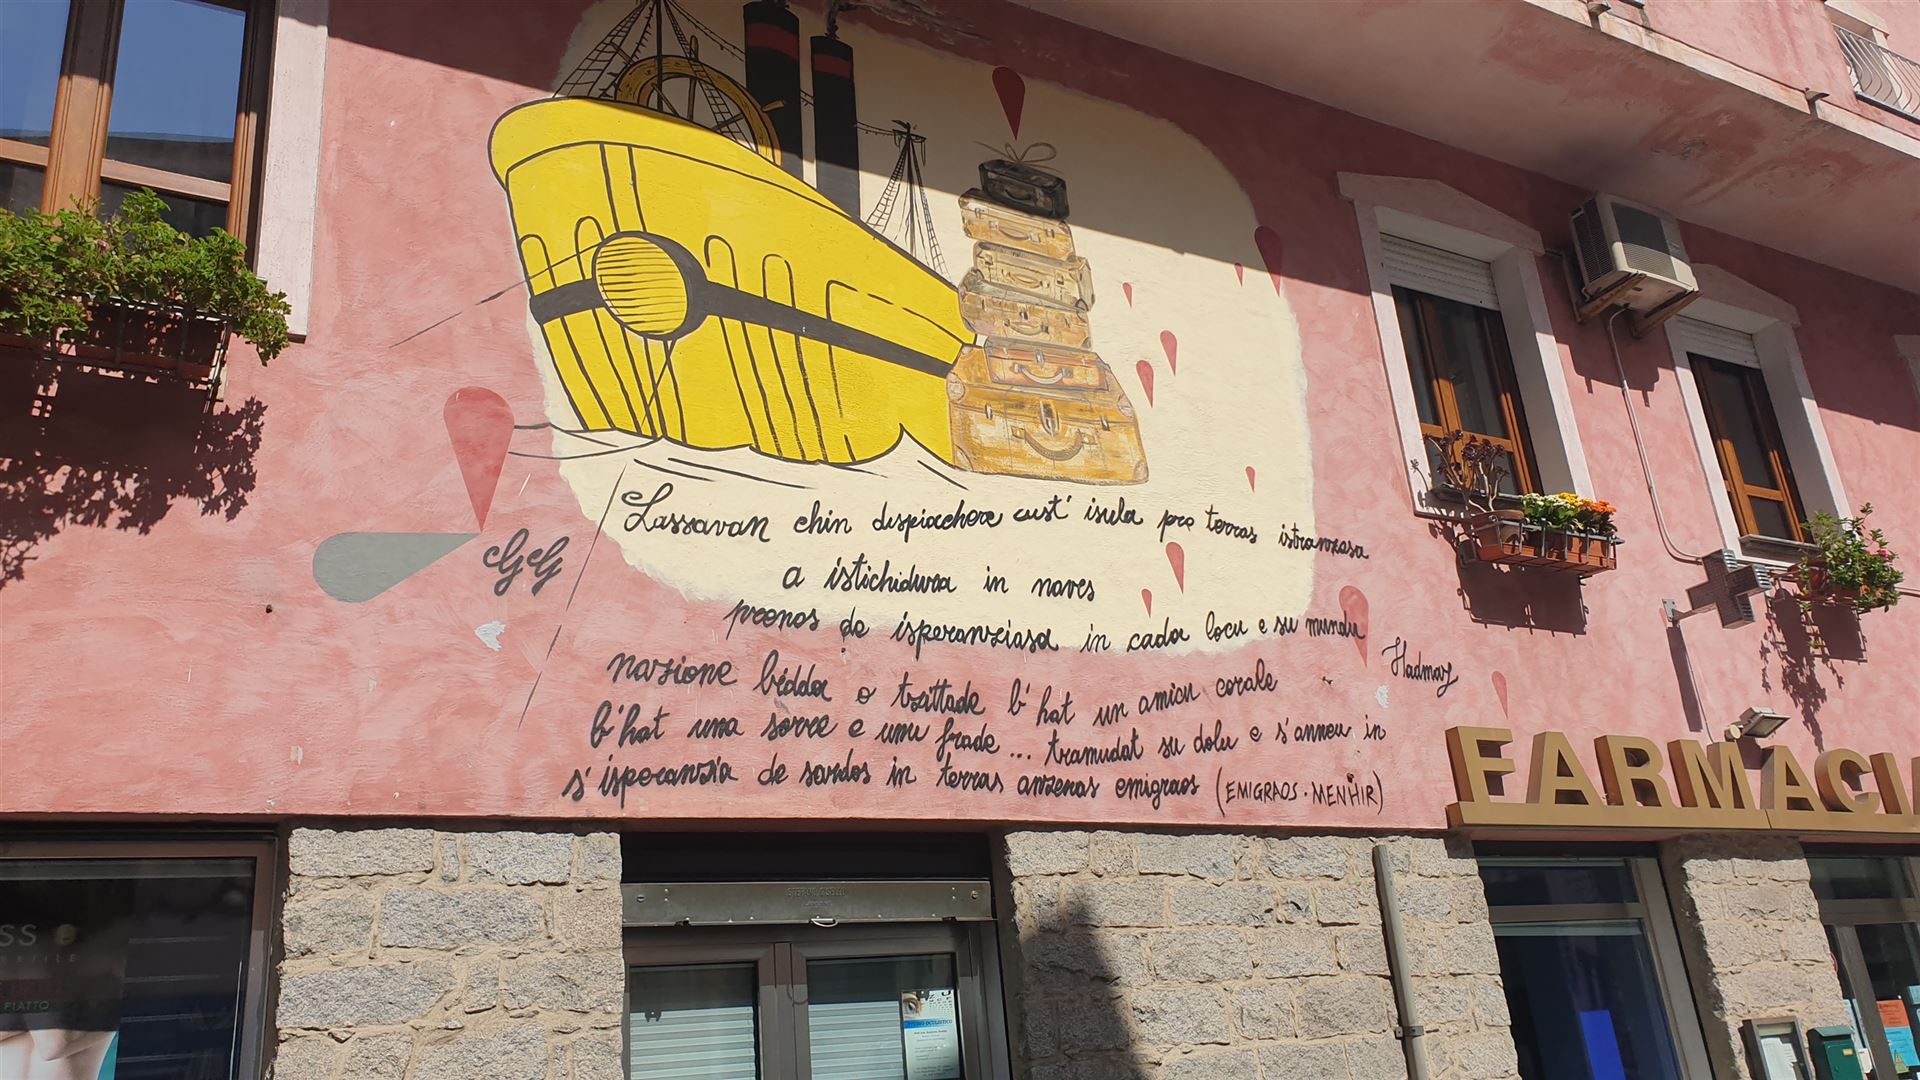 Lassavan chin dispiachere cust' isula pro terras istranzasa
a istichidura in naves
prenos de isperanziasa in cada locu e su mundu
nazione bèdda o trittade b'hat un amicu corale
b'hat una sorre e unu frade ... tramudat su dolu e s'anneu in
s'isperanzia de sardos in terras anzenas emigraos (EMIGRAOS · MENHIR)
GG
Hadmaz
FARMACIA
PIATTO
STUDIO OCULISTICO